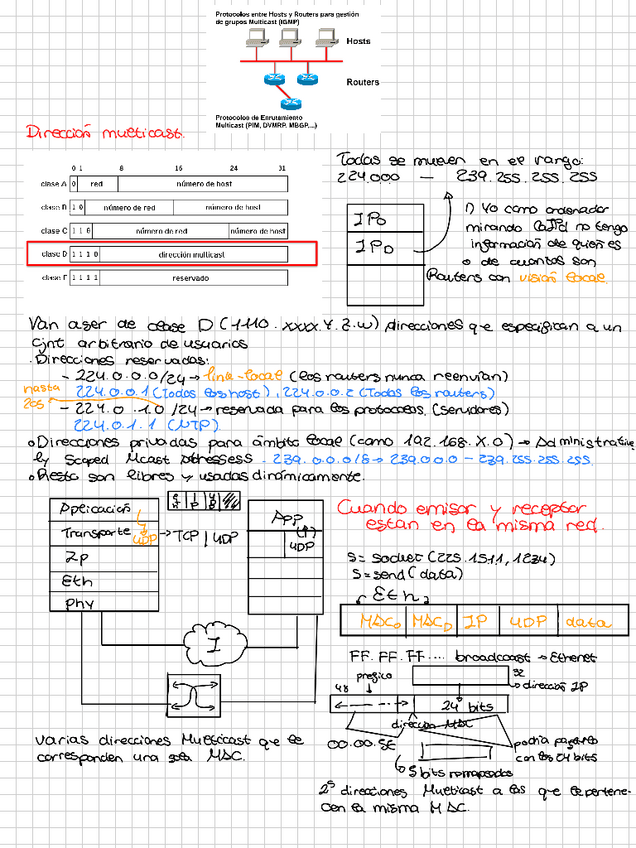 Protocolos entre Hosts y Routers para gestión
de grupos Multicast (IGMP)
Hosts
Routers
Protocolos de Enrutamiento
Multicast (PIM, DVMRP, MBGP,...)
Dirección multicast.
0 1 8 16 24 31
clase A 0 red número de host
clase B 1 0 número de red número de host
clase C 1 1 0 número de red número de host
clase D 1 1 1 0 dirección multicast
clase E 1 1 1 1 reservado
Todas se mueven en el rango:
224.0.0.0 — 239.255.255.255
IPo
IPD
1) Yo como ordenador
mirando la IPd no tengo
información de quienes
o de cuantos son
Routers con visión local.
Van a ser de clase D (1110.xxxx.Y.Z.W) direcciones que especifican a un
cjnt arbitrario de usuarios
· Direcciones reservadas:
- 224.0.0.0/24 → link-local (los routers nunca reenvían)
224.0.0.1 (Todos los host), 224.0.0.2 (Todos los routers)
hasta
255
- 224.0.1.0/24 → reservada para los protocolos. (servidores)
224.0.1.1 (NTP)
o Direcciones privadas para ámbito local (como 192.168.X.0) → Administrative
ly Scoped Mcast Addressess - 239.0.0.0/8 → 239.0.0.0 - 239.255.255.255.
o Resto son libres y usadas dinámicamente.
Aplicación
Transporte
UDP
→ TCP | UDP
Ip
Eth
phy
App
UDP
I
Cuando emisor y receptor
están en la misma red.
S = socket (225.1.5.11, 1234)
S = send (data)
Eth
MACo MACD IP UDP data
FF.FF.FF.... broadcoast → Ethernet
32
→ dirección IP
prefijo
48
24 bits
dirección MAC
00.00.5E
podría pegarlo
con los 24 bits
5 bits remapeados
2⁵ direcciones Multicast a las que le pertene-
cen la misma MAC.
varias direcciones Multicast que le
corresponden una sola MAC.